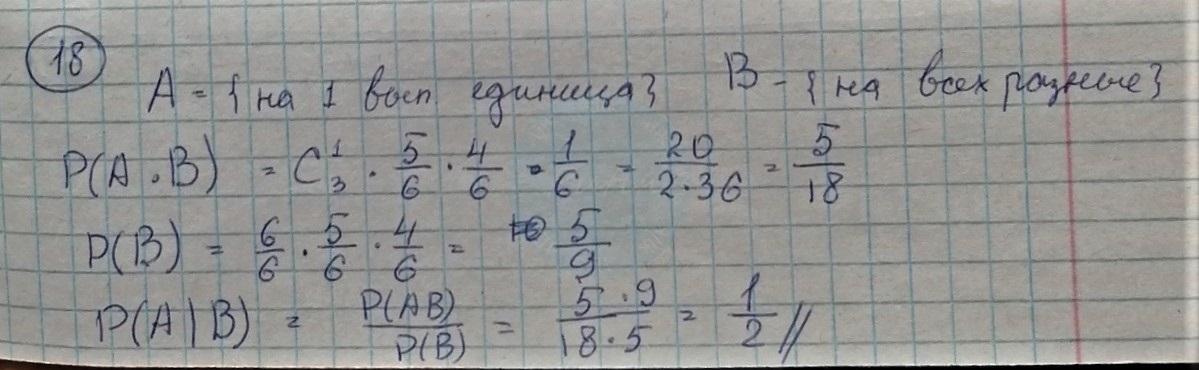 18
A = {на 1 вып. единица} B - {на всех разные}
P(A·B) = C₃¹ · 5/6 · 4/6 · 1/6 = 20/2·36 = 5/18
P(B) = 6/6 · 5/6 · 4/6 = 5/9
P(A|B) = P(AB)/P(B) = 5·9/18·5 = 1/2 //